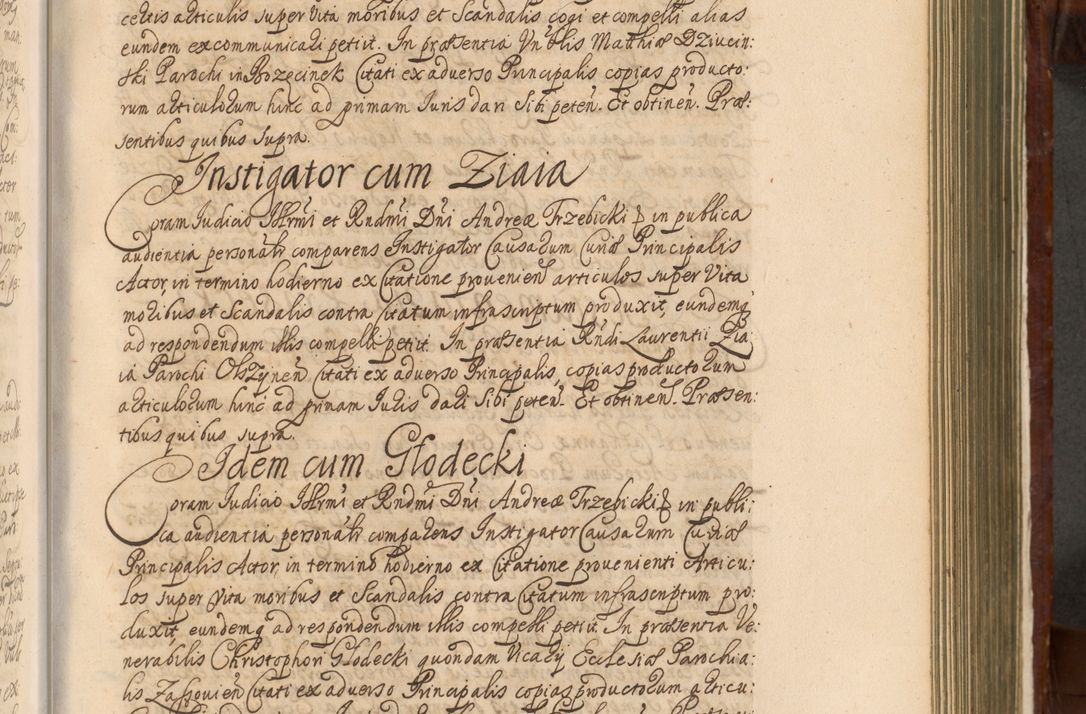 certis articulis super vita moribus et Scandalis cogi et compelli alias
eundem excommunicari petiit. In præsentia Vnblis Matthiæ Dziucin:
ski Parochi in Brzęcinek Citati ex adverso Principalis copias producto:
rum articulorum hinc ad primam Iuris dari sibi peteñ. Et obtineñ. Præ:
sentibus quibus supra.
Instigator cum Ziaia
Coram Iudicio Illrmi et Rndmi Dni Andreæ Trzebicki in publica
audientia personalr comparens Instigator Causarum Curiæ Principalis
Actor, in termino hodierno ex Citatione provenień articulos super Vita
moribus et Scandalis contra Citatum infrascriptum produxit, eundemq
ad respondendum illis compelli petiit. In præsentia Rndi Laurentii Zia:
ia Parochi Olszyneñ Citati ex adverso Principalis, copias productorum
articulorum hinc ad primam Iuris dari Sibi peteñ. Et obtineñ. Præsen:
tibus quibus supra.
Idem cum Głodecki
Coram Iudicio Illrmi et Rndmi Dni Andreæ Trzebicki in publi:
ca audientia personalr comparens Instigator Causarum Curiæ
Principalis Actor, in termino hodierno ex Citatione provenienti Articu:
los super Vita moribus et Scandalis contra Citatum infrascriptum pro:
duxit, eundemq ad respondendum illis compelli petiit. In præsentia Ve:
nerabilis Christophori Głodecki quondam Vicarij Ecclesiæ Parochia:
lis Zassovień Citati ex adverso Principalis copias productorum articu: